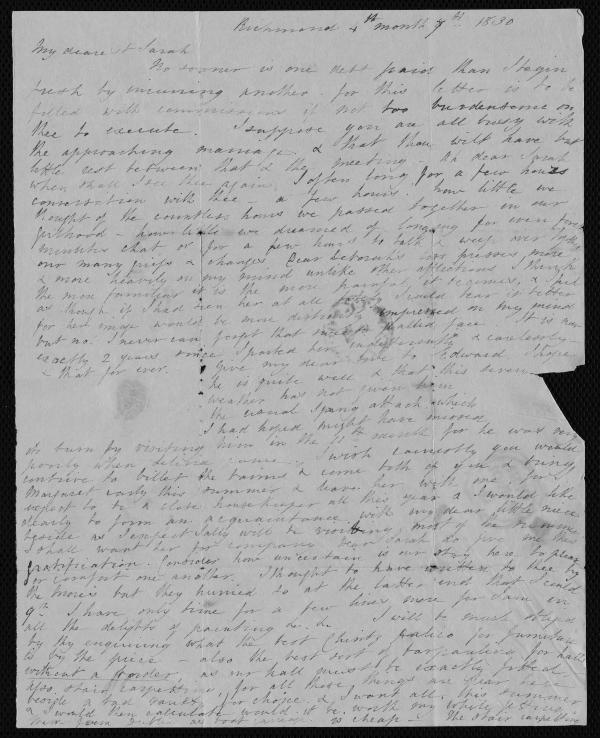 Richmond 4th month 7th 1830
My dearest Sarah
No sooner is one debt paid than I begin
fresh by incurring another for this letter is to be
filled with commissions if not too burdensome on
thee to execute. I suppose you are all busy with
the approaching marriage & that thou wilt have but
little rest between that & the meeting Ah dear Sarah
when shall I see thee again I often long for a few hours
conversation with thee - a few hours. how little we
thought of the countless hours we passed together in our
girlhood - how little we dreamed of longing for even
minutes chat or for a few hours to talk & weep over
our many griefs & changes Dear Deborahs loss presses more
& more heavily on my mind unlike other afflictions I think
the more familiar it is the more painful it becomes, I feel
as though if I had seen her at all I could bear it better
for her image would be more impressed on my mind
but no. I never can forget that pallid face It is now
exactly 2 years since I parted her & carelessly
& that for ever. Give my dear love to Edward I hope
he is quite well & that this severe
weather has not given him
the usual Spring attack which
I had hoped might have missed
its turn by visiting him in the 11th month for he was very
poorly when I wish earnestly you would
contrive to billet the bairns & come both of you & bring
Margaret early this summer & leave her with me for I
expect to be a close housekeeper all this year & I would like
dearly to form an acquaintance with my dear little niece
beside as most of the time
I shall want her for company dear Sarah do give me this
gratification. Consider how uncertain is our stay here to please
or comfort one another. I thought to have written to thee by
the but they hurried so at the latter end that I could
I have only time for a few lines more for I am in
all the delights of painting &c &c I will be much obliged
by thy enquiring what the best Chintz calico for furniture
is by the piece - also the best sort of tarpauling for halls
without a border, as our hall must be exactly fitted
also stair carpetting, for all these things are dear here
beside a bad choice & I want all this summer
& would then calculate would it be worth my while getting
them from Dublin as boat carriage is cheap - The stair carpetting